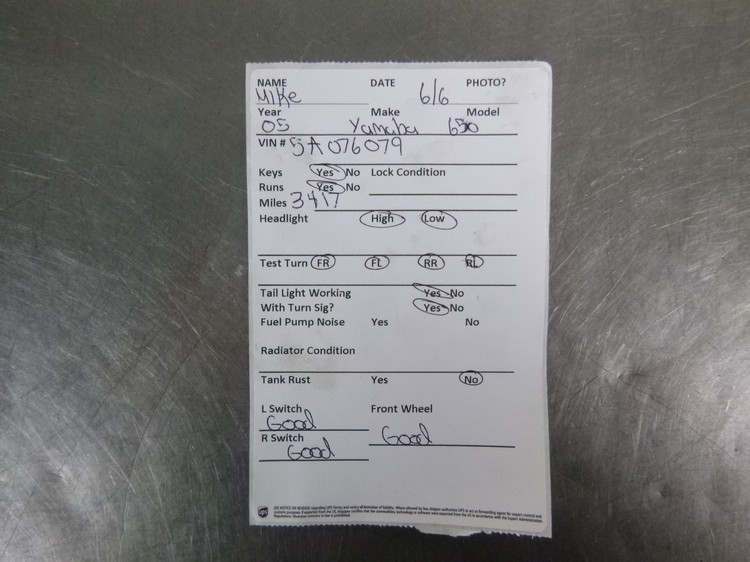 NAME DATE PHOTO?
Mike 6/6
Year Make Model
05 Yamaha 650
VIN # 5A076079
Keys Yes No Lock Condition
Runs Yes No
Miles 3417
Headlight High Low
Test Turn FR FL RR RL
Tail Light Working Yes No
With Turn Sig? Yes No
Fuel Pump Noise Yes No
Radiator Condition
Tank Rust Yes No
L Switch Front Wheel
Good Good
R Switch
Good